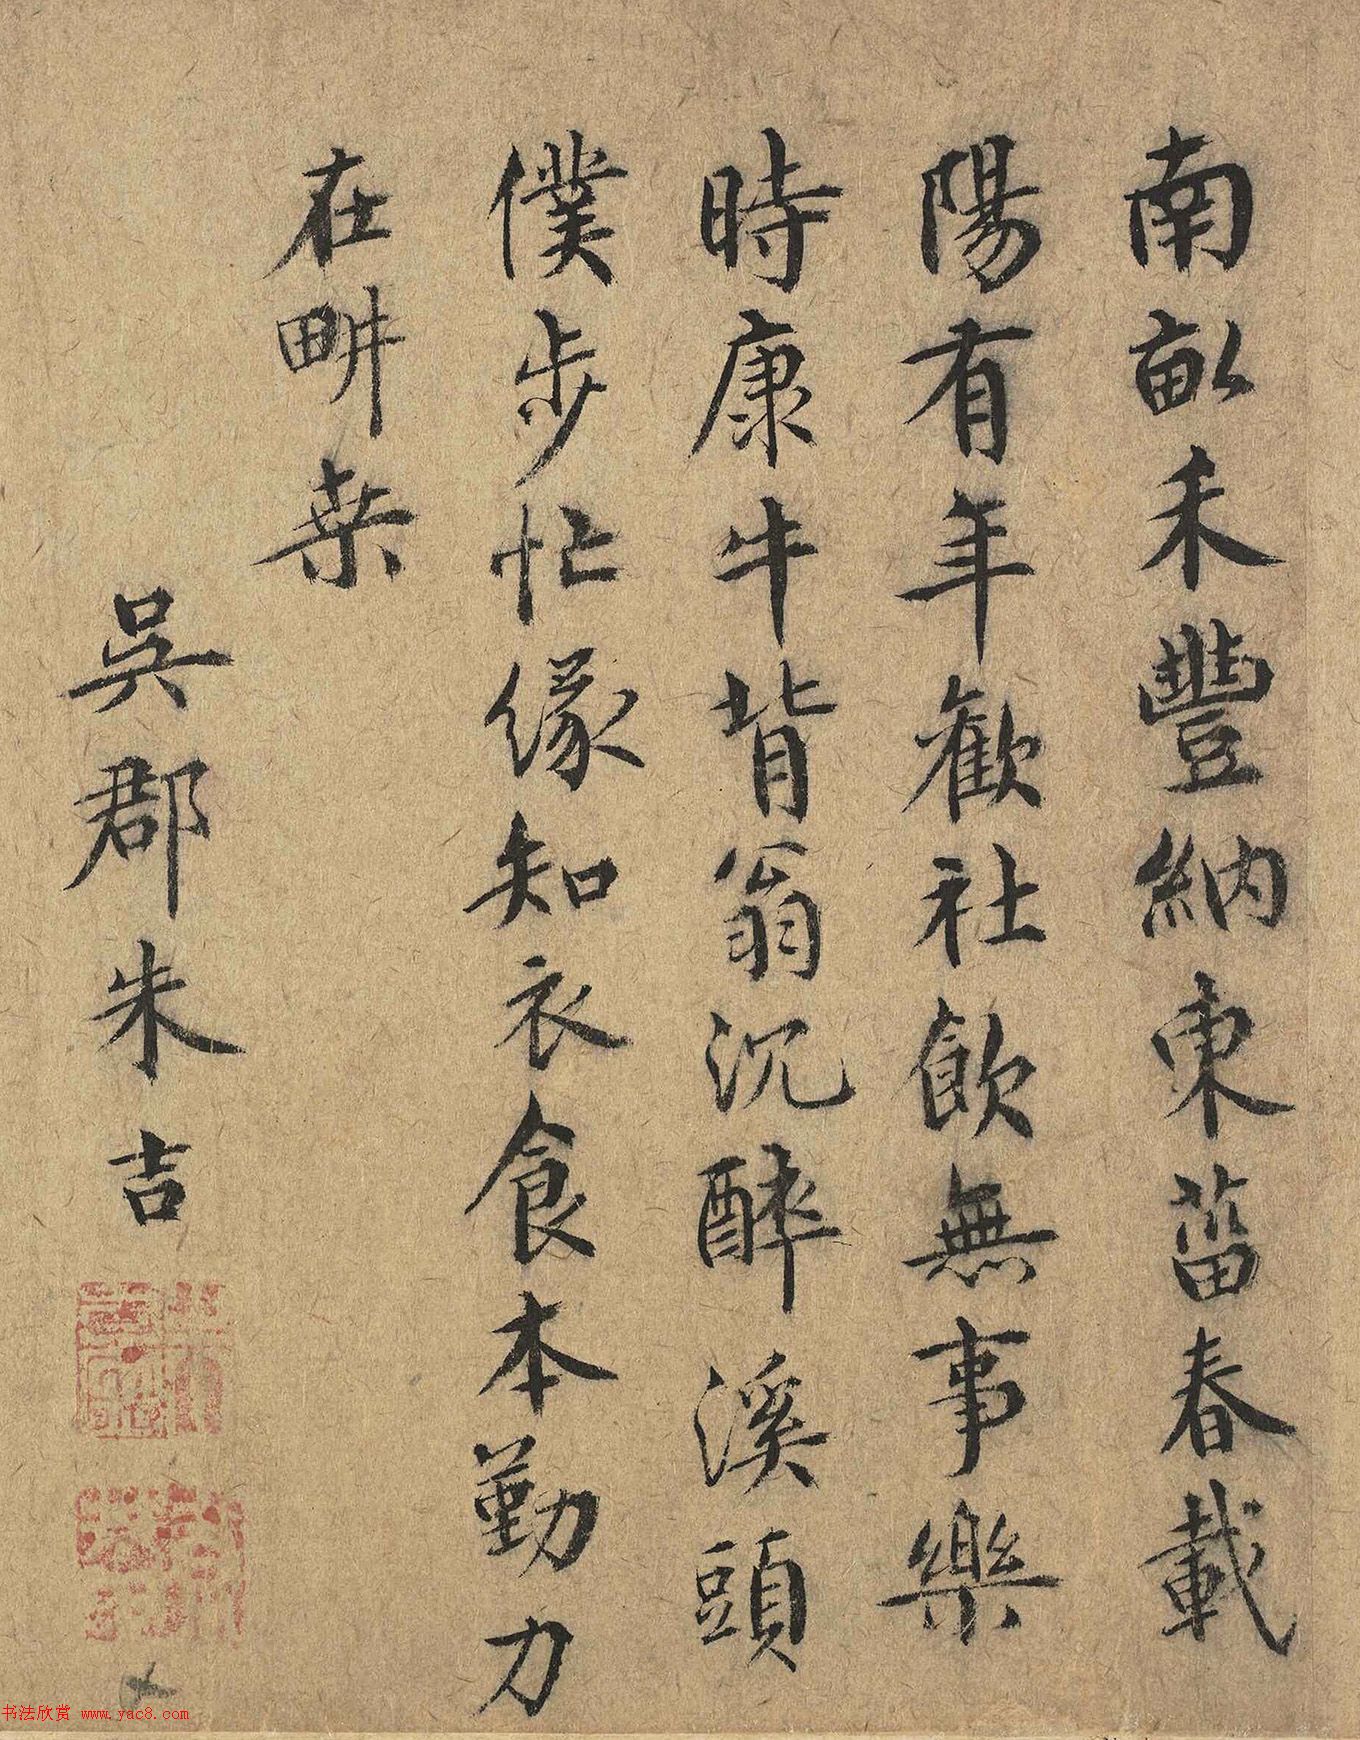 南畝禾豐納東菑春載
陽有年歡社飲無事樂
時康牛背翁沉醉溪頭
僕步忙緣知衣食本勤力
在畊桒
吳郡朱吉
书法欣赏 www.yac8.com